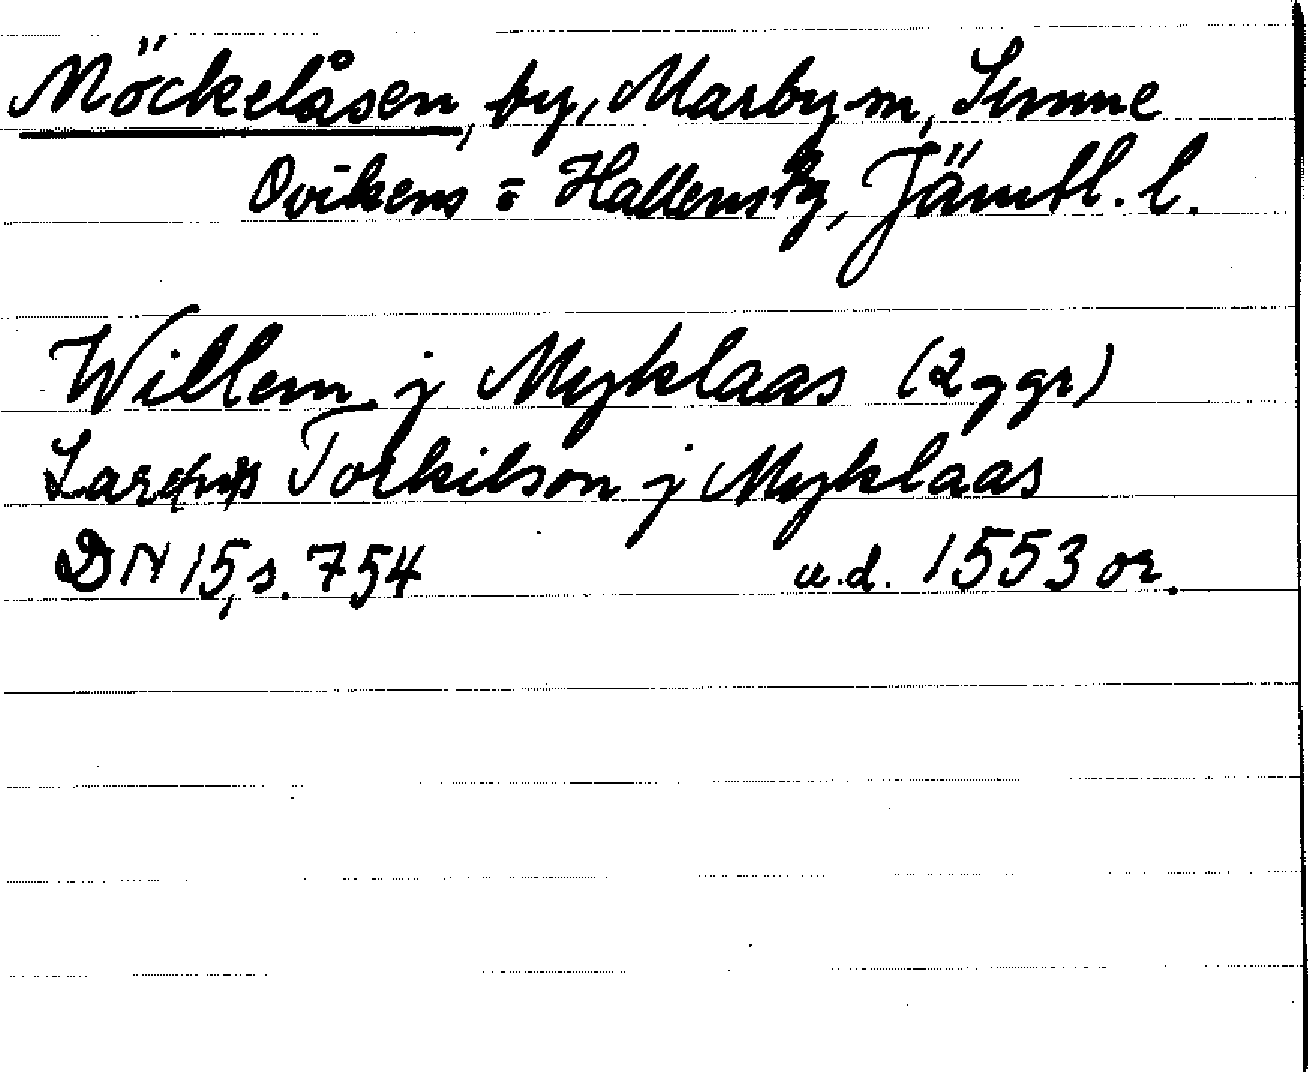 Möckelåsen, by, Marby sn, Sunne
Ovikens o Hallens tg, Jämtl. l.
Willem j Myklaas (2 ggr)
Torkilson j Myklaas
DN 15, s. 754 u.d. 1553 or.